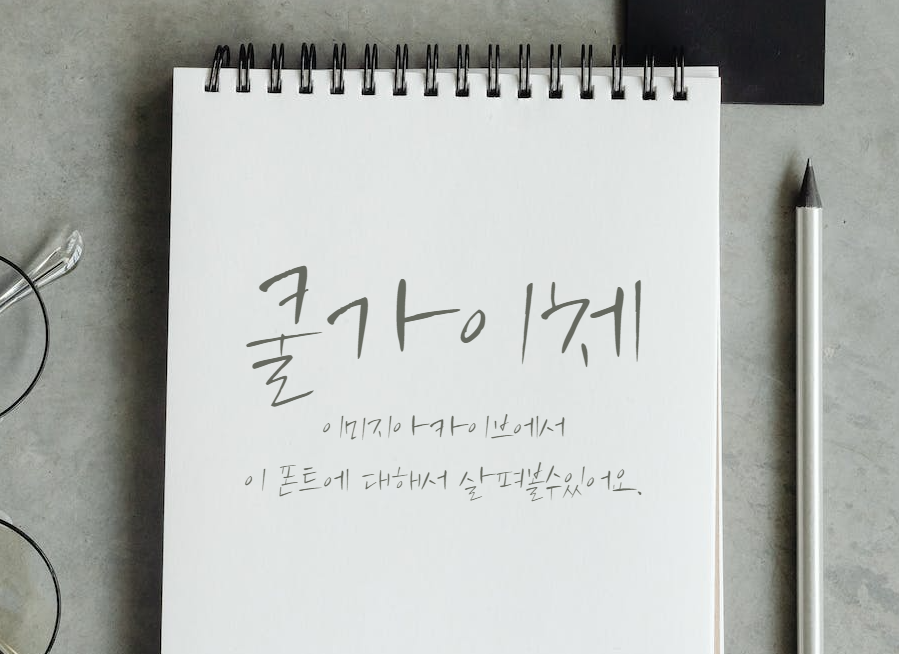 쿨가이체
이미지아카이브에서
이 폰트에 대해서 살펴볼수있어요.